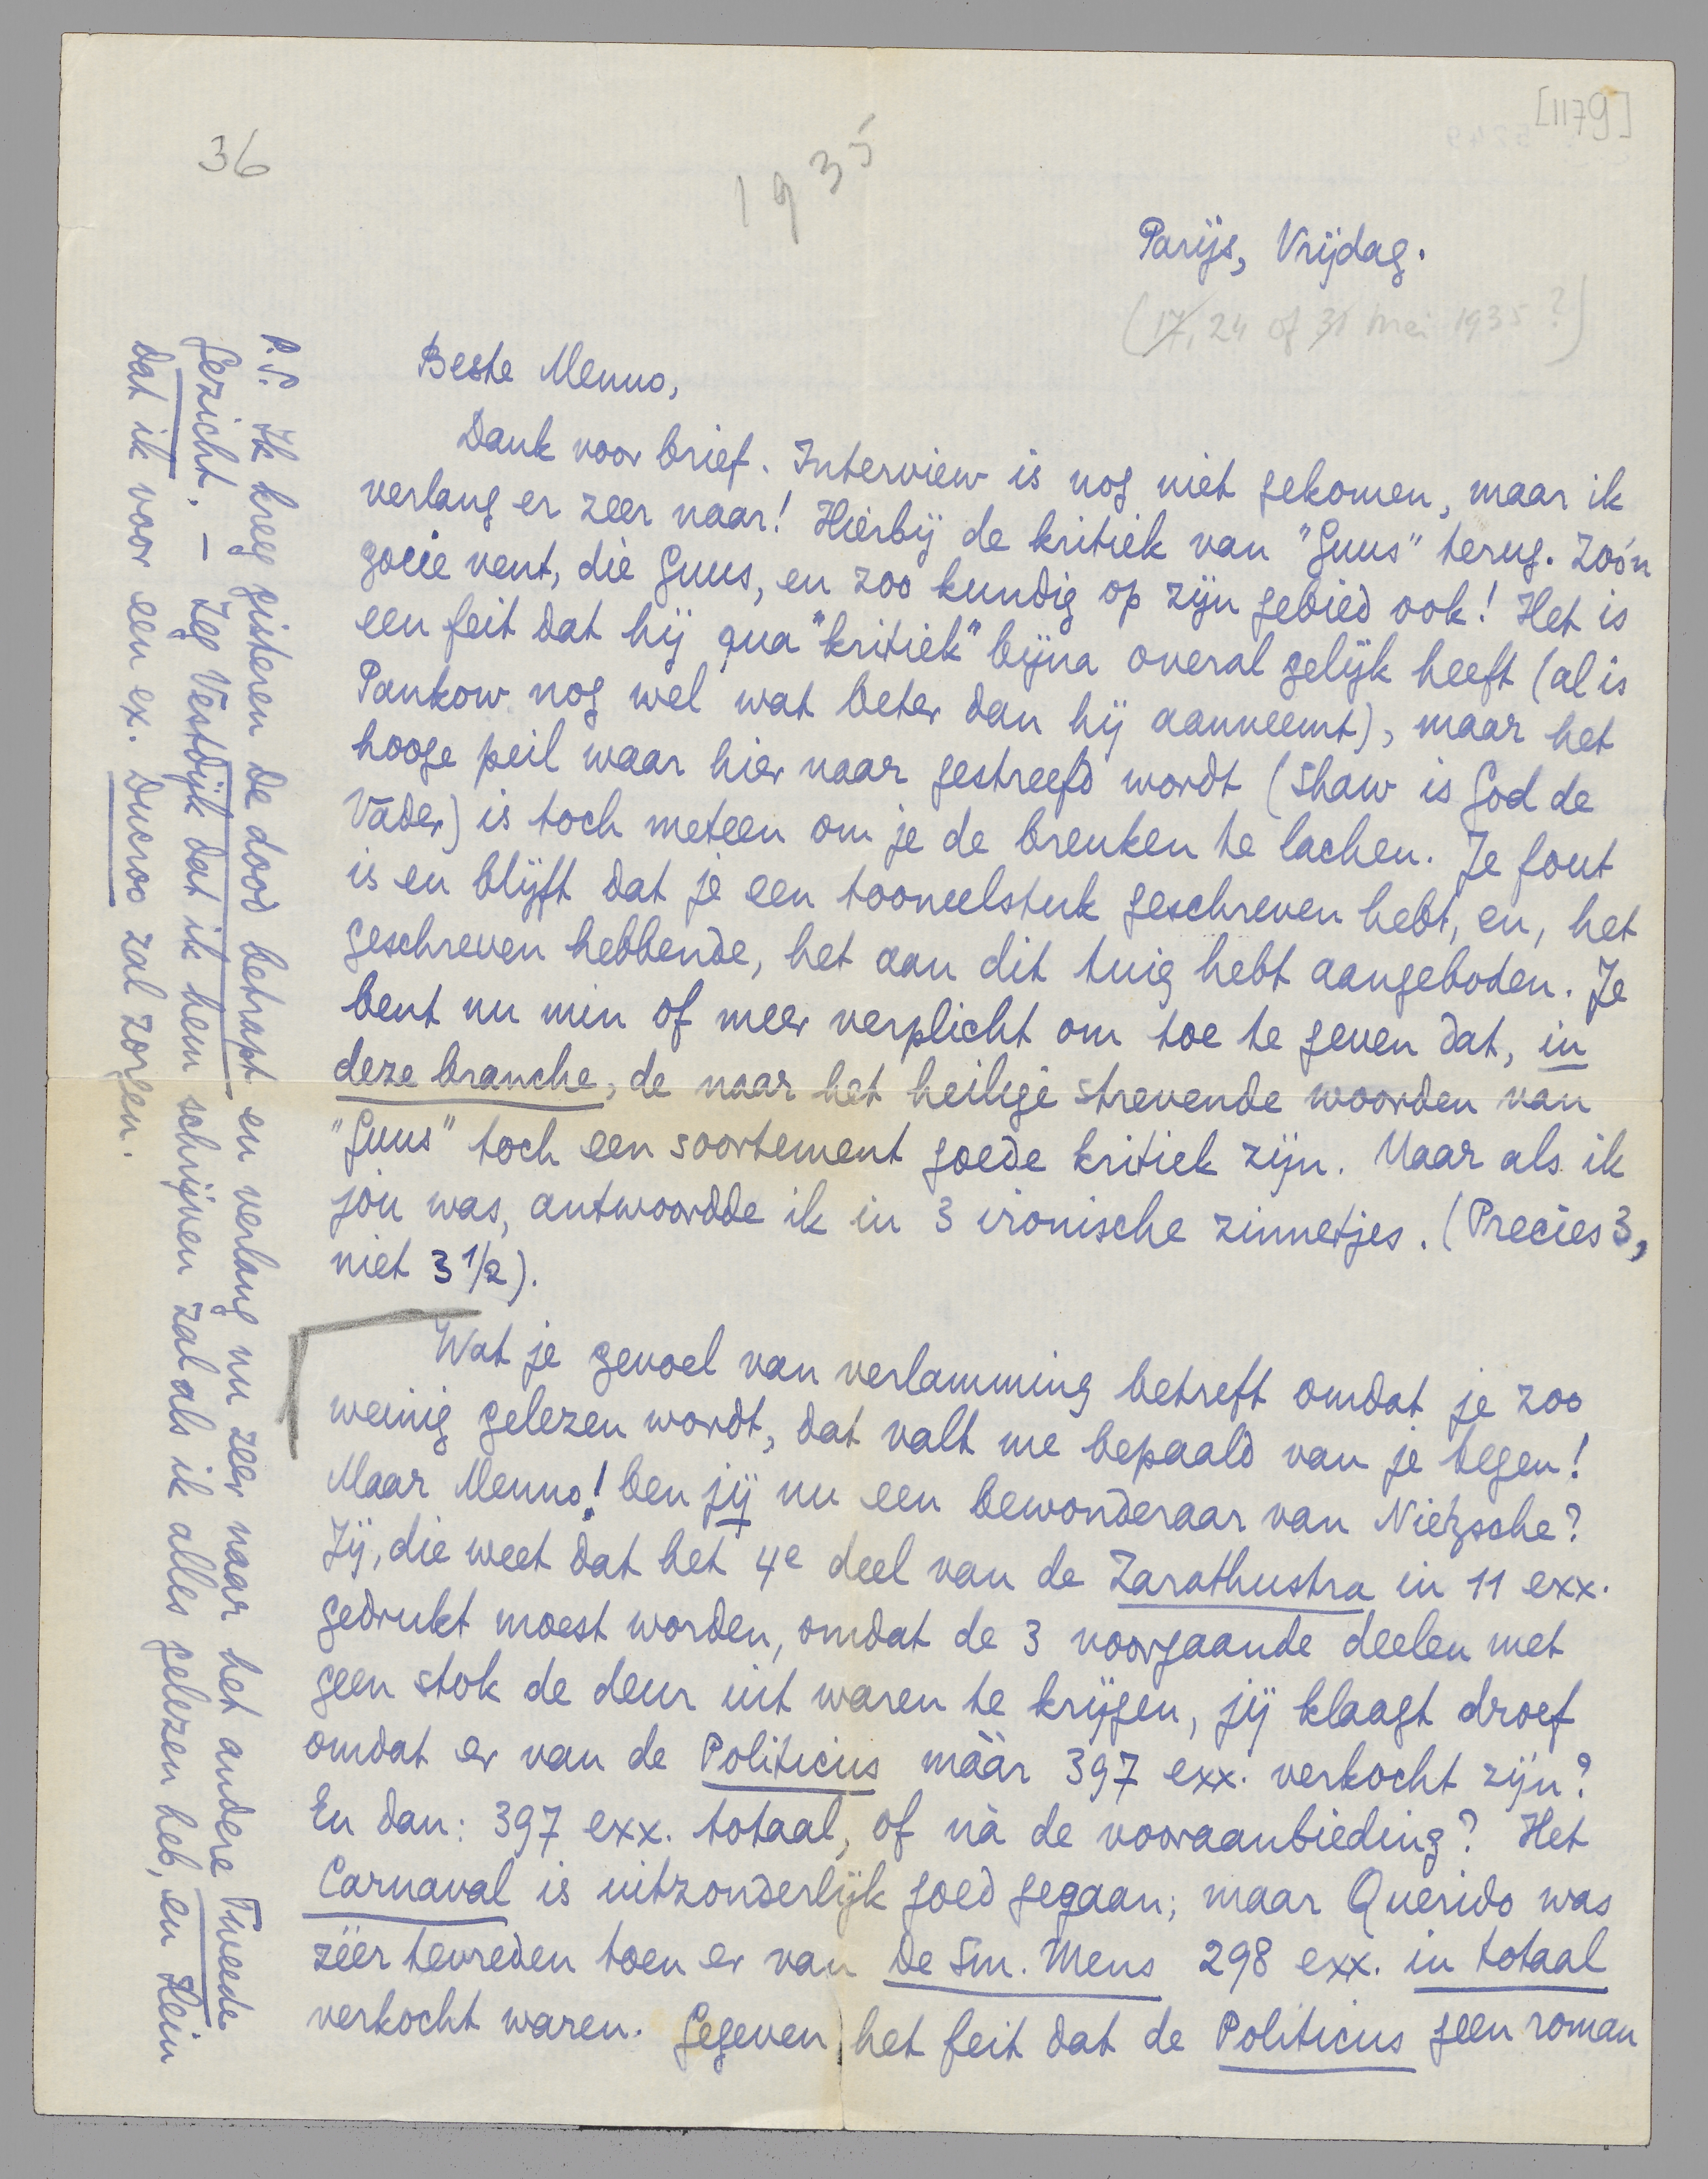 [1179]
36
1935
Parijs, Vrijdag.
(17, 24 of 31 Mei 1935?)
Beste Menno,
Dank voor brief. Interview is nog niet gekomen, maar ik
verlang er zeer naar! Hierbij de kritiek van "Guus" terug. Zoo'n
goeie vent, die Guus, en zoo kundig op zijn gebied ook! Het is
een feit dat hij qua "kritiek" bijna overal gelijk heeft (al is
Pankow nog wel wat beter dan hij aanneemt), maar het
hooge peil waar hier naar gestreefd wordt (Shaw is God de
Vader) is toch meteen om je de breuken te lachen. Je fout
is en blijft dat je een tooneelstuk geschreven hebt, en, het
geschreven hebbende, het aan dit tuig hebt aangeboden. Je
bent nu min of meer verplicht om toe te geven dat, in
deze branche, de naar het heilige strevende woorden van
"Guus" toch een soortement goede kritiek zijn. Maar als ik
jou was, antwoordde ik in 3 ironische zinnetjes. (Precies 3,
niet 3 1/2).
Wat je gevoel van verlamming betreft omdat je zoo
weinig gelezen wordt, dat valt me bepaald van je tegen!
Maar Menno! ben jij nu een bewonderaar van Nietzsche?
Jij, die weet dat het 4e deel van de Zarathustra in 11 exx.
gedrukt moest worden, omdat de 3 voorgaande deelen met
geen stok de deur uit waren te krijgen, jij klaagt droef
omdat er van de Politicus máár 397 exx. verkocht zijn?
En dan: 397 exx. totaal, of ná de vooraanbieding? Het
Carnaval is uitzonderlijk goed gegaan; maar Querido was
zéér tevreden toen er van De Sm. Mens 298 exx. in totaal
verkocht waren. Gegeven het feit dat de Politicus geen roman
P.S. Ik kreeg gisteren De dood betrapt en verlang nu zeer naar het andere Tweede
Gezicht. – Zeg Vestdijk dat ik hem schrijven zal als ik alles gelezen heb, en Hein
dat ik voor een ex. Ducroo zal zorgen.